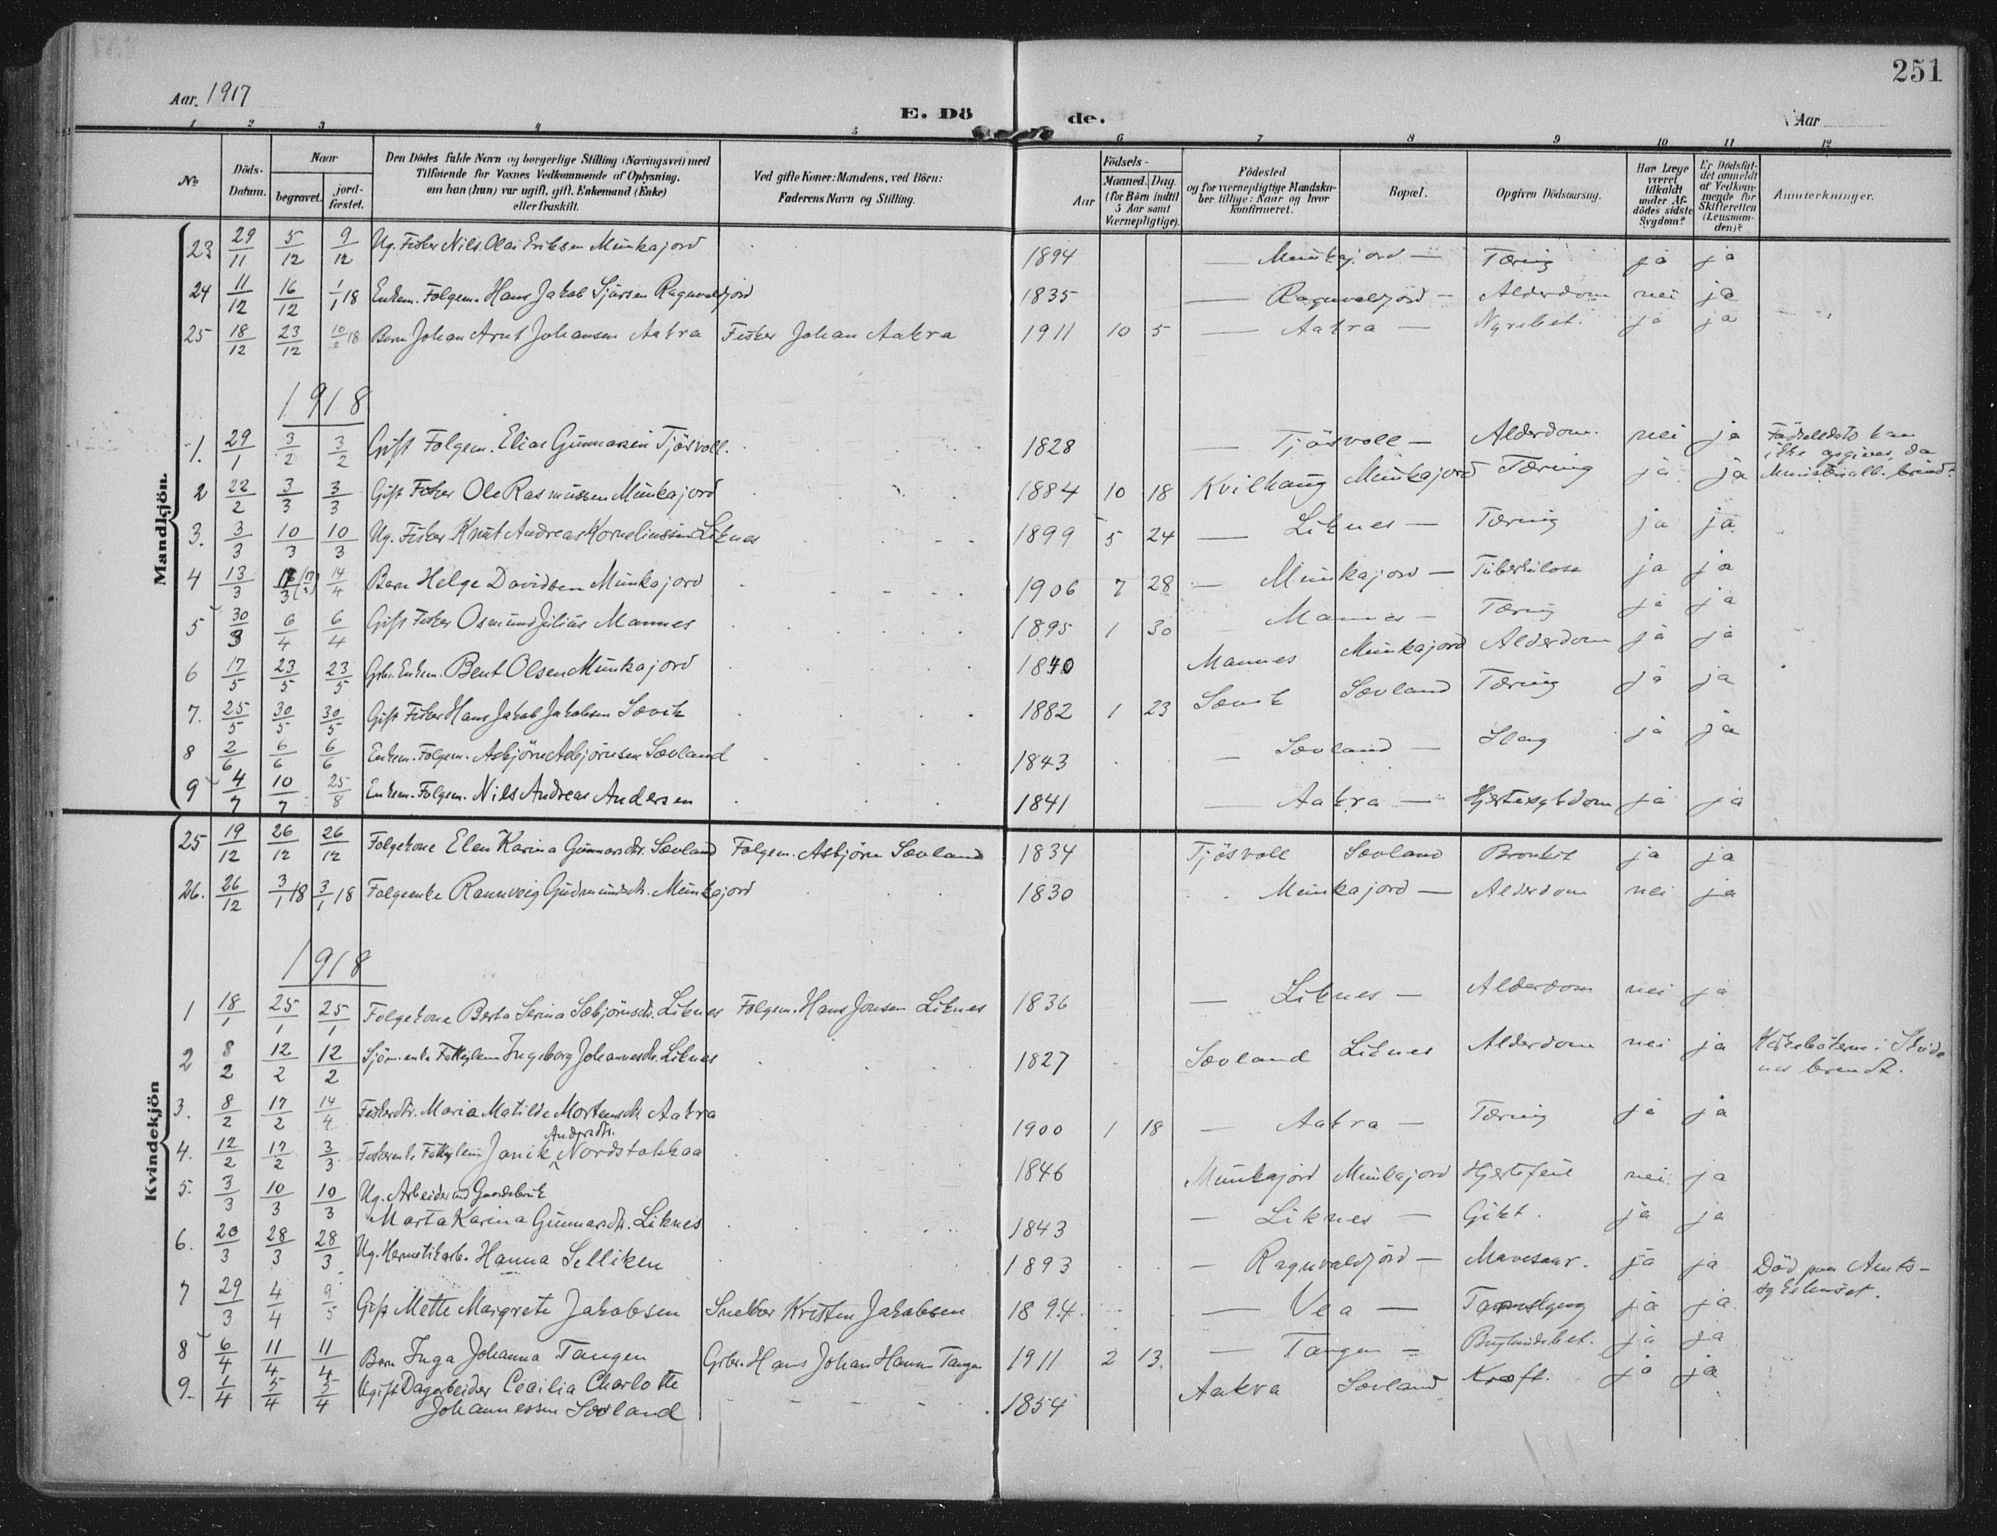 251
Aar. 1917 E. Dö de. Aar
1 2 3 4 5 6 7 8 9 10 11 12
No Döds-Datum. Naar begravet. jord-fæstet. Den Dödes fulde Navn og borgerlige Stilling (Næringsvei) med Tilföiende for Voxnes Vedkommende af Oplysning, om han (hun) var ugift, gift, Enkemand (Enke) eller fraskilt. Ved gifte Koner: Mandens, ved Börn: Faderens Navn og Stilling. Aar Födsels- Maaned. Dag. (for Börn indtil 5 Aar samt Værnepligtige). Födested og for værnepligtige Mandskaber tillige: Naar og hvor konfirmeret. Bopæl. Opgiven Dödsaarsag. Har Læge været tilkaldt under Afdödes sidste Sygdom? Er Dödsfaldet anmeldt af Vedkommende for Skifteretten (Lensmanden)? Anmerkninger.
Mandkjön.
23 29/11 5/12 9/12 Ug. Fisker Nils Olai Eriksen Munkajord 1894 — Munkajord — Tæring ja ja
24 11/12 16/12 1/1 18 Enkem. Folgem. Hans Jakob Sjursen Ragnvaldjord 1835 — Ragnvaldjord — Alderdom nei ja
25 18/12 23/12 10/2 18 Barn Johan Arnt Johansen Aakra Fisker Johan Aakra 1911 10 5 — Aakra — Nyrebet. ja ja
1918
1. 29/1 3/2 3/2 Gift Folgem. Elias Gunnarsen Tjösvoll. 1828 — Tjösvoll — Alderdom. nei ja Födselsdato kan ikke opgives, da Ministerialb. brændt
2 22/2 3/3 3/3 Gift Fisker Ole Rasmussen Munkajord 1884 10 18 Kvilhaug Munkajord Tæring ja ja
3. 3/3 10/3 10/3 Ug. Fisker Knut Andreas Korneliussen Liknes 1899 5 24 — Liknes — Tæring ja ja
4 13/3 14/4 Barn Helge Davidsen Munkajord 1906 7 28 — Munkajord — Tuberkulose ja ja
5 30/3 6/4 6/4 Gift Fisker Osmund Julius Mannes 1895 1 30 Mannes — Tæring ja ja
6 17/5 23/5 23/5 Gbr. Enkem. Bent Olsen Munkajord 1840 Mannes Munkajord Alderdom ja ja
7. 25/5 30/5 30/5 Gift Fisker Hans Jakob Jakobsen Sævik 1882 1 23 Sævik Sævland Tæring ja ja
8 2/6 6/6 6/6 Enkem. Folgem. Asbjörn Asbjörnsen Sævland 1843 — Sævland — Slag ja ja
9 4/7 10/7 25/8 Enkem. Folgem. Nils Andreas Andersen 1841 — Aakra — Hjertesygdom ja ja
Kvindekjön
25 19/12 26/12 26/12 Folgekone Elen Karina Gunnarsdtr. Sævland Folgem. Asbjörn Sævland 1834 Tjösvoll Sævland Bronkit ja ja
26. 26/12 3/1 18 3/1 18 Folgeenke Rannveig Gudmundsdtr. Munkajord 1830 Munkajord — Alderdom nei ja
1918
1 18/1 25/1 25/1 Folgekone Berta Serina Sebjörnsdtr. Liknes Folgem. Hans Jonsen Liknes 1836 — Liknes — Alderdom nei ja
2 8/2 12/2 12/2 Sjöm.enke Fattiglem Ingeborg Johannesdtr. Liknes 1827 Sævland Liknes Alderdom nei ja Kirkeböterne i Skudenes brendt.
3. 8/2 17/2 14/4 Fiskerdtr. Maria Matilde Mortensdtr. Aakra 1900 1 18 — Aakra — Tæring ja ja
4. 12/2 17/2 3/3 Fiskerenke Fattiglem Janik Andersdtr. Nordstokkaa 1846 Munkajord Munkajord Hjertefeil nei ja
5. 3/3 10/3 10/3 Ug. Arbeider ved Gaardsbruk
Marta Karina Gunnarsdtr. Liknes 1843 — Liknes — Gikt. ja ja
6. 20/3 28/3 28/3 Ug. Hermetikarb. Hanna Selliken 1893 — Ragnvaldjord — Mavesaar. ja ja Död paa Amtssykehuset.
7 29/3 4/4 9/5 Gift Mette Margrete Jakobsen Snekker Kristen Jakobsen 1894 — Vea — ja ja
8 6/4 11/4 11/4 Barn Inga Johanna Tangen Gbr. Hans Johan Hansen Tangen 1911 2 13. — Tangen — Bughindebet. ja ja
9. 1/4 5/4 5/4 Ugift Dagarbeider Cecilia Charlotte
Johannessen Sævland 1854 Aakra Sævland Kræft. ja ja